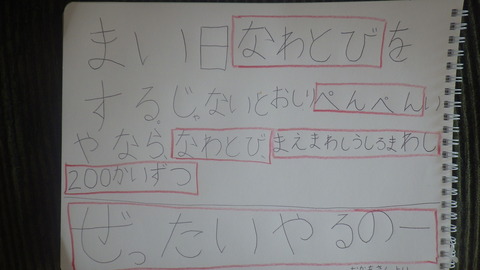 まい日なわとびを
する。じゃないとおしりぺんぺんい
やなら、なわとび、まえまわしうしろまわし
200かいずつ
ぜったいやるのー